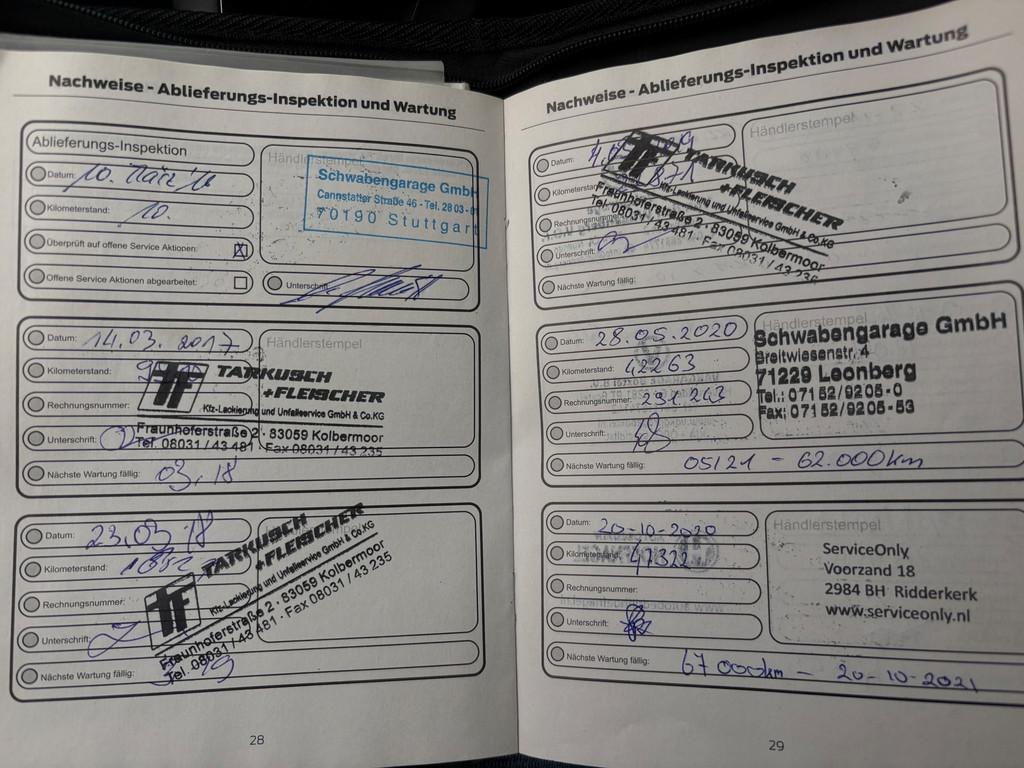 Nachweise - Ablieferungs-Inspektion und Wartung
Ablieferungs-Inspektion
Datum: 10. März '16
Kilometerstand: 10.
Überprüft auf offene Service Aktionen:
Offene Service Aktionen abgearbeitet:
Händlerstempel
Schwabengarage GmbH
Cannstatter Straße 46 - Tel. 28 03 -
70190 Stuttgart
Unterschrift
Datum: 14.03.2017
Kilometerstand:
Rechnungsnummer:
Unterschrift:
Nächste Wartung fällig: 03.18
Händlerstempel
TF TARKUSCH
+FLEISCHER
Kfz-Lackierung und Unfallservice GmbH & Co.KG
Fraunhoferstraße 2 · 83059 Kolbermoor
Tel. 08031 / 43 481 · Fax 08031 / 43 235
Datum: 23.03.18
Kilometerstand:
Rechnungsnummer:
Unterschrift:
Nächste Wartung fällig:
TF TARKUSCH
+FLEISCHER
Kfz-Lackierung und Unfallservice GmbH & Co.KG
Fraunhoferstraße 2 · 83059 Kolbermoor
Tel. 08031 / 43 481 · Fax 08031 / 43 235
28
Nachweise - Ablieferungs-Inspektion und Wartung
Datum:
Kilometerstand:
Rechnungsnummer:
Unterschrift:
Nächste Wartung fällig:
Händlerstempel
TF TARKUSCH
+FLEISCHER
Kfz-Lackierung und Unfallservice GmbH & Co.KG
Fraunhoferstraße 2 · 83059 Kolbermoor
Tel. 08031 / 43 481 · Fax 08031 / 43 235
Datum: 28.05.2020
Kilometerstand: 42263
Rechnungsnummer:
Unterschrift:
Nächste Wartung fällig: 05/21 - 62.000km
Händlerstempel
Schwabengarage GmbH
Breitwiesenstr. 4
71229 Leonberg
Tel.: 071 52/9205-0
Fax: 071 52/9205-53
Datum: 20-10-2020
Kilometerstand: 47322
Rechnungsnummer:
Unterschrift:
Nächste Wartung fällig: 67000km - 20-10-2021
Händlerstempel
ServiceOnly
Voorzand 18
2984 BH Ridderkerk
www.serviceonly.nl
29